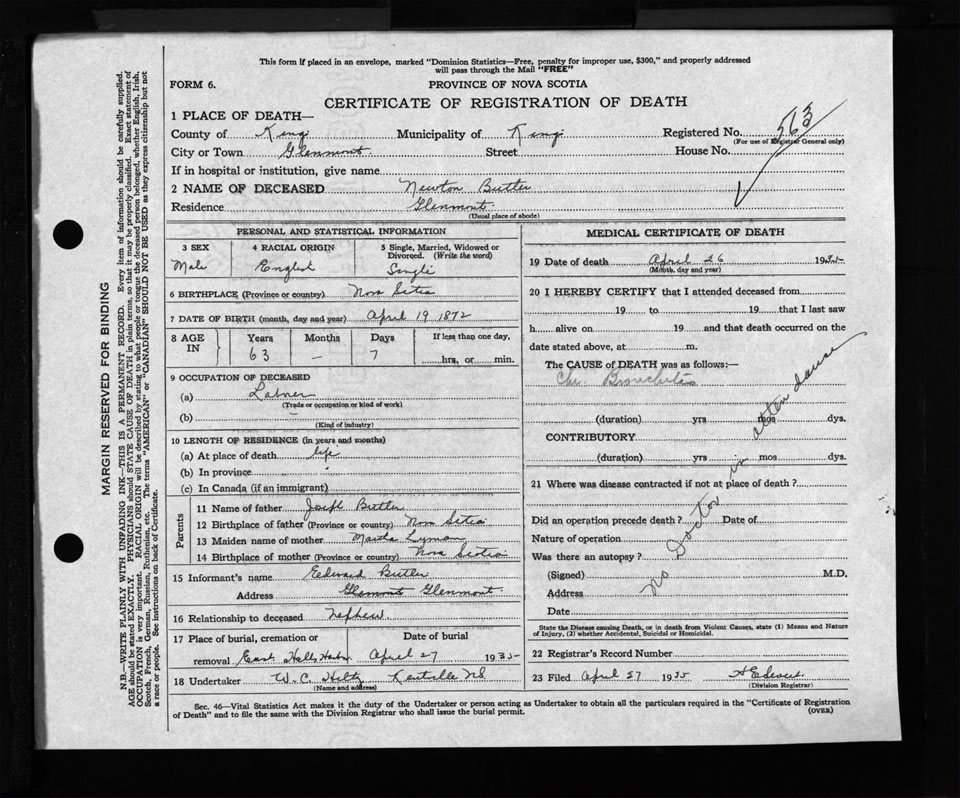 This form if placed in an envelope, marked "Dominion Statistics—Free, penalty for improper use, $300," and properly addressed
will pass through the Mail "FREE"
FORM 6.
PROVINCE OF NOVA SCOTIA
CERTIFICATE OF REGISTRATION OF DEATH
1 PLACE OF DEATH—
County of Kings Municipality of Kings Registered No. 563
(For use of Registrar General only)
City or Town Glenmont. Street House No.
If in hospital or institution, give name
2 NAME OF DECEASED Newton Butler
Residence Glenmont.
(Usual place of abode)
PERSONAL AND STATISTICAL INFORMATION
3 SEX 4 RACIAL ORIGIN 5 Single, Married, Widowed or
Divorced. (Write the word)
Male English Single
6 BIRTHPLACE (Province or country) Nova Scotia
7 DATE OF BIRTH (month, day and year) April 19 1872
8 AGE IN Years Months Days If less than one day,
63 — 7 hrs, or min.
9 OCCUPATION OF DECEASED
(a) Laborer
(Trade or occupation or kind of work)
(b)
(Kind of industry)
10 LENGTH OF RESIDENCE (in years and months)
(a) At place of death life
(b) In province
(c) In Canada (if an immigrant)
Parents
11 Name of father Joseph Butler
12 Birthplace of father (Province or country) Nova Scotia
13 Maiden name of mother Martha Lyman
14 Birthplace of mother (Province or country) Nova Scotia
15 Informant's name Edward Butler
Address Glenmont.
16 Relationship to deceased nephew
17 Place of burial, cremation or Date of burial
removal East Halls Harbr April 27 1935
18 Undertaker W. C. Hiltz Kentville NS
(Name and address)
MEDICAL CERTIFICATE OF DEATH
19 Date of death April 26 1935
(Month, day and year)
20 I HEREBY CERTIFY that I attended deceased from
19 to 19 that I last saw
h alive on 19 and that death occurred on the
date stated above, at m.
The CAUSE OF DEATH was as follows:—
Chr. Bronchitis
(duration) yrs mos dys.
CONTRIBUTORY
(duration) yrs mos dys.
21 Where was disease contracted if not at place of death?
Did an operation precede death? Date of
Nature of operation
Was there an autopsy?
(Signed) M.D.
Address
Date
No Doctor in attendance
State the Disease causing Death, or in death from Violent Causes, state (1) Means and Nature
of Injury, (2) whether Accidental, Suicidal or Homicidal.
22 Registrar's Record Number
23 Filed April 27 1935
(Division Registrar)
Sec. 46—Vital Statistics Act makes it the duty of the Undertaker or person acting as Undertaker to obtain all the particulars required in the "Certificate of Registration
of Death" and to file the same with the Division Registrar who shall issue the burial permit. (OVER)
MARGIN RESERVED FOR BINDING
N.B.—WRITE PLAINLY WITH UNFADING INK—THIS IS A PERMANENT RECORD. Every item of information should be carefully supplied.
AGE should be stated EXACTLY. PHYSICIANS should STATE CAUSE OF DEATH in plain terms, so that it may be properly classified. Exact statement of
OCCUPATION is very important. RACIAL ORIGIN will be described by stating to what people or tongue the deceased person belonged, whether English, Irish,
Scotch, French, German, Russian, Ruthenian, etc. The terms "AMERICAN" or "CANADIAN" SHOULD NOT BE USED as they express citizenship but not
a race or people. See instructions on back of Certificate.